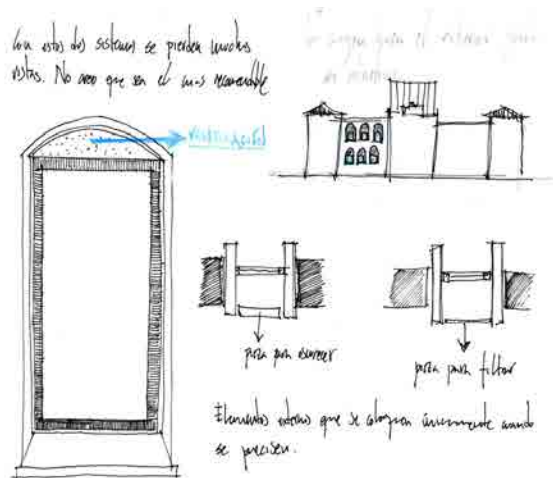 Con estos dos sistemas se pierden muchas
vistas. No creo que sea el más recomendable
para el
pieza para oscurecer
pieza para filtrar
Elementos externos que se coloquen únicamente cuando
se precisen.